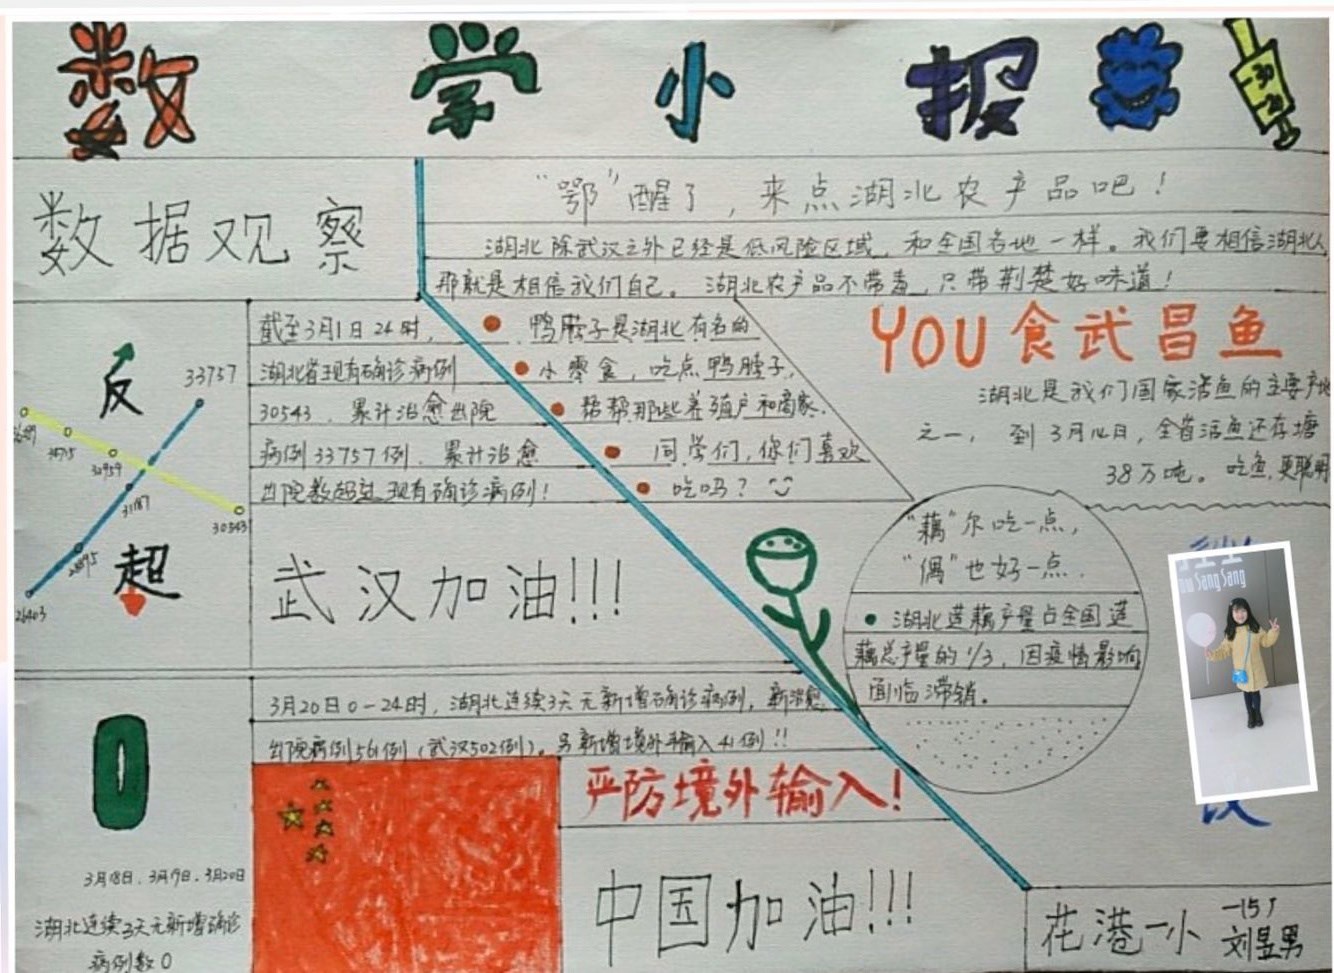 数学小报
数据观察
"鄂"醒了，来点湖北农产品吧！
湖北除武汉之外已经是低风险区域，和全国各地一样。我们要相信湖北人
那就是相信我们自己。湖北农产品不带毒，只带荆楚好味道！
反
超
33757
30543
31187
28895
26403
30715
32959
截至3月1日24时，
湖北省现有确诊病例
30543．累计治愈出院
病例33757例．累计治愈
出院数超过现有确诊病例！
鸭脖子是湖北有名的
小零食，吃点鸭脖子，
帮帮那些养殖户和商家．
同学们，你们喜欢
吃吗？
YOU食武昌鱼
湖北是我们国家活鱼的主要产地
之一，到3月12日，全省活鱼还存塘
38万吨。吃鱼，更聪明
武汉加油!!!
"藕"尔吃一点，
"偶"也好一点．
湖北莲藕产量占全国莲
藕总产量的1/3，因疫情影响
面临滞销。
Sang Sang
0
3月18日．3月19日．3月20日
湖北连续3天无新增确诊
病例数0
3月20日0-24时，湖北连续3天无新增确诊病例，新治愈
出院病例561例（武汉502例）。另新增境外输入41例!!
严防境外输入！
中国加油!!!
花港一小
刘昱男